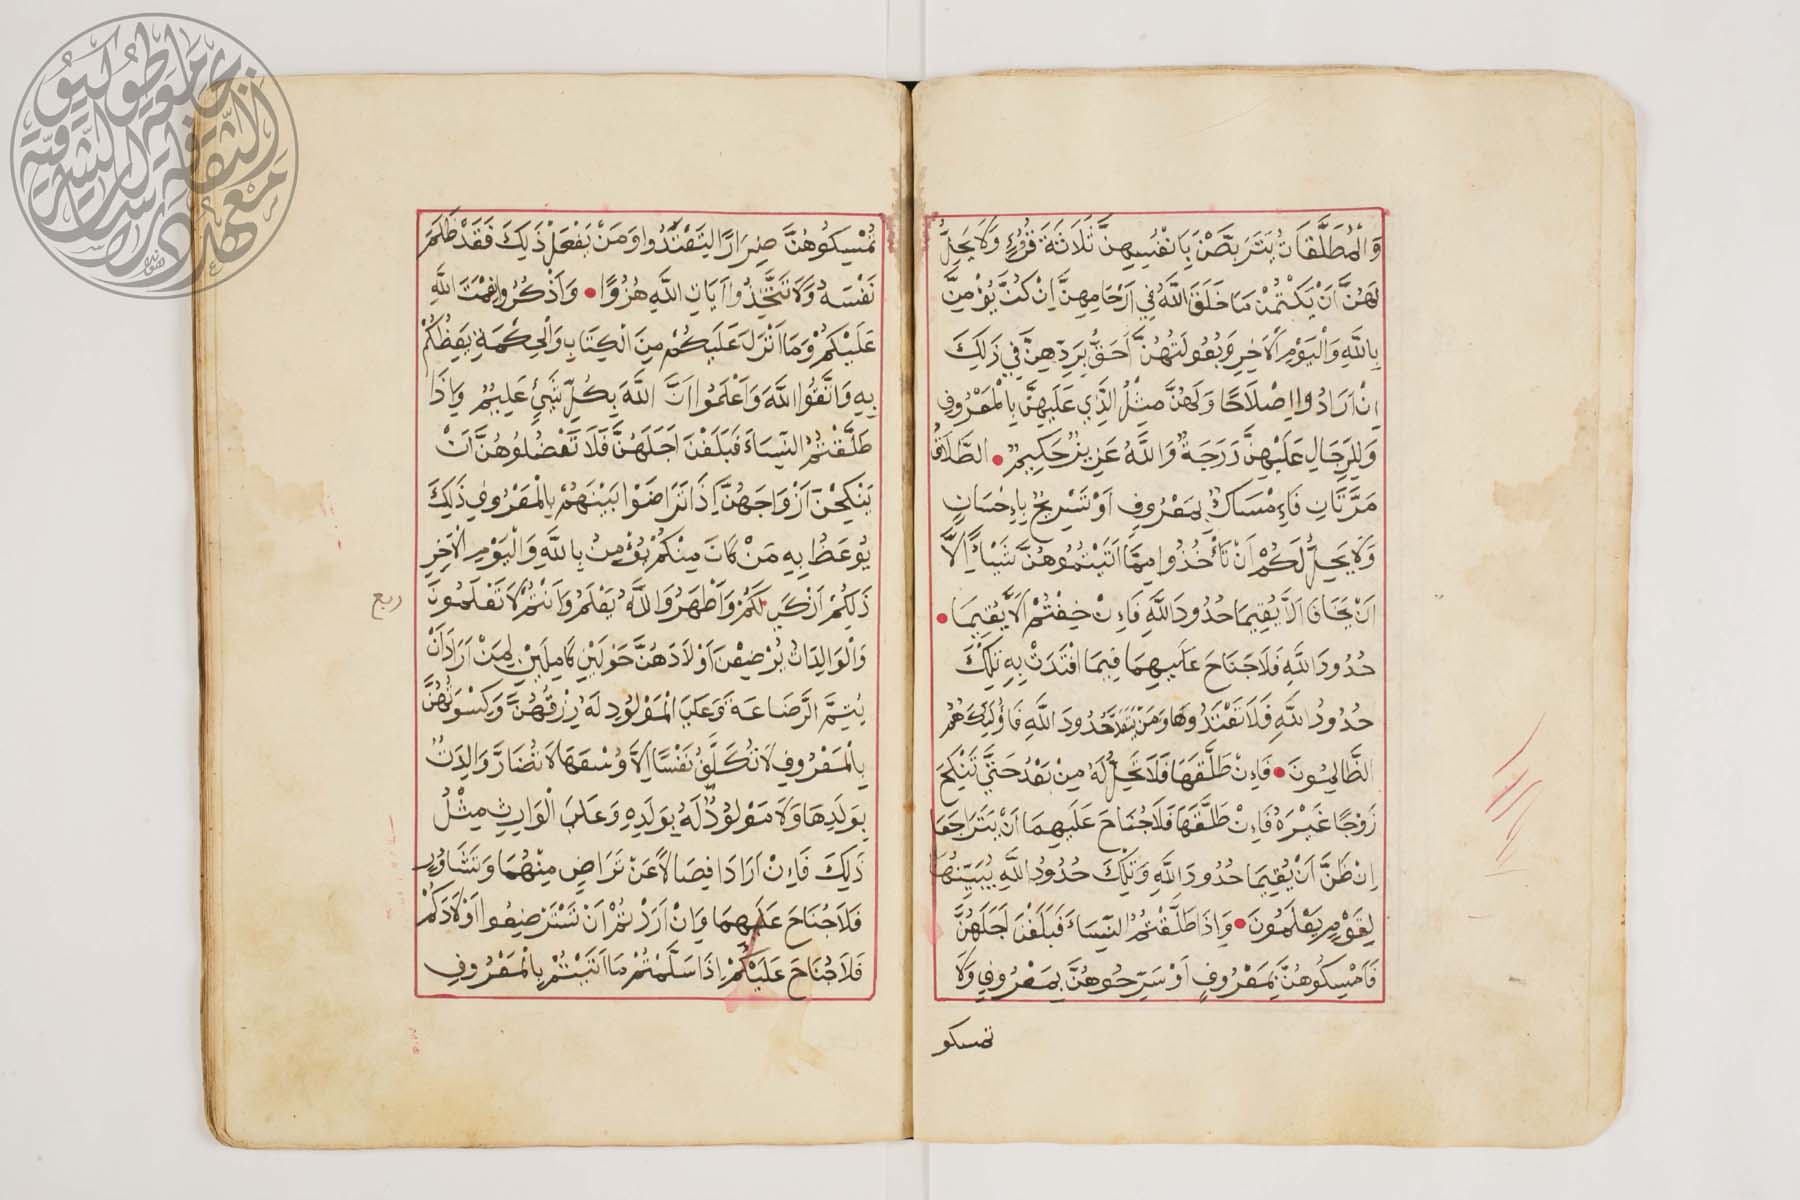 وَالْمُطَلَّقَاتُ يَتَرَبَّصْنَ بِاَنْفُسِهِنَّ ثَلَاثَةَ قُرُوءٍ وَلَا يَحِلُّ
لَهُنَّ اَنْ يَكْتُمْنَ مَا خَلَقَ اللَّهُ فِي اَرْحَامِهِنَّ اِنْ كُنَّ يُؤْمِنَّ
بِاللَّهِ وَالْيَوْمِ الْاَخِرِ وَبُعُولَتُهُنَّ اَحَقُّ بِرَدِّهِنَّ فِي ذَلِكَ
اِنْ اَرَادُوا اِصْلَاحًا وَلَهُنَّ مِثْلُ الَّذِي عَلَيْهِنَّ بِالْمَعْرُوفِ
وَلِلرِّجَالِ عَلَيْهِنَّ دَرَجَةٌ وَاللَّهُ عَزِيزٌ حَكِيمٌ الطَّلَاقُ
مَرَّتَانِ فَاِمْسَاكٌ بِمَعْرُوفٍ اَوْ تَسْرِيحٌ بِاِحْسَانٍ
وَلَا يَحِلُّ لَكُمْ اَنْ تَأْخُذُوا مِمَّا اَتَيْتُمُوهُنَّ شَيْـًٔا اِلَّا
اَنْ يَخَافَا اَلَّا يُقِيمَا حُدُودَ اللَّهِ فَاِنْ خِفْتُمْ اَلَّا يُقِيمَا
حُدُودَ اللَّهِ فَلَا جَنَاحَ عَلَيْهِمَا فِيمَا افْتَدَتْ بِهِ تِلْكَ
حُدُودُ اللَّهِ فَلَا تَعْتَدُوهَا وَمَنْ يَتَعَدَّ حُدُودَ اللَّهِ فَاُولٰئِكَ هُمُ
الظَّالِمُونَ فَاِنْ طَلَّقَهَا فَلَا تَحِلُّ لَهُ مِنْ بَعْدُ حَتَّى تَنْكِحَ
زَوْجًا غَيْرَهُ فَاِنْ طَلَّقَهَا فَلَا جُنَاحَ عَلَيْهِمَا اَنْ يَتَرَاجَعَا
اِنْ ظَنَّا اَنْ يُقِيمَا حُدُودَ اللَّهِ وَتِلْكَ حُدُودُ اللَّهِ يُبَيِّنُهَا
لِقَوْمٍ يَعْلَمُونَ وَاِذَا طَلَّقْتُمُ النِّسَاءَ فَبَلَغْنَ اَجَلَهُنَّ
فَاَمْسِكُوهُنَّ بِمَعْرُوفٍ اَوْ سَرِّحُوهُنَّ بِمَعْرُوفٍ وَلَا
تمسكو
تُمْسِكُوهُنَّ ضِرَارًا لِتَعْتَدُوا وَمَنْ يَفْعَلْ ذَلِكَ فَقَدْ ظَلَمَ
نَفْسَهُ وَلَا تَتَّخِذُوا اَيَاتِ اللَّهِ هُزُوًا وَاذْكُرُوا نِعْمَتَ اللَّهِ
عَلَيْكُمْ وَمَا اَنْزَلَ عَلَيْكُمْ مِنَ الْكِتَابِ وَالْحِكْمَةِ يَعِظُكُمْ
بِهِ وَاتَّقُوا اللَّهَ وَاعْلَمُوا اَنَّ اللَّهَ بِكُلِّ شَيْئٍ عَلِيمٌ وَاِذَا
طَلَّقْتُمُ النِّسَاءَ فَبَلَغْنَ اَجَلَهُنَّ فَلَا تَعْضُلُوهُنَّ اَنْ
يَنْكِحْنَ اَزْوَاجَهُنَّ اِذَا تَرَاضَوْا بَيْنَهُمْ بِالْمَعْرُوفِ ذَلِكَ
يُوعَظُ بِهِ مَنْ كَانَ مِنْكُمْ يُؤْمِنُ بِاللَّهِ وَالْيَوْمِ الْاَخِرِ
ذَلِكُمْ اَزْكَى لَكُمْ وَاَطْهَرُ وَاللَّهُ يَعْلَمُ وَاَنْتُمْ لَا تَعْلَمُونَ
ربع
وَالْوَالِدَاتُ يُرْضِعْنَ اَوْلَادَهُنَّ حَوْلَيْنِ كَامِلَيْنِ لِمَنْ اَرَادَ اَنْ
يُتِمَّ الرَّضَاعَةَ وَعَلَى الْمَوْلُودِ لَهُ رِزْقُهُنَّ وَكِسْوَتُهُنَّ
بِالْمَعْرُوفِ لَا تُكَلَّفُ نَفْسًا اِلَّا وُسْعَهَا لَا تُضَارَّ وَالِدَتٌ
بِوَلَدِهَا وَلَا مَوْلُودٌ لَهُ بِوَلَدِهِ وَعَلَى الْوَارِثِ مِثْلُ
ذَلِكَ فَاِنْ اَرَادَا فِصَالًا عَنْ تَرَاضٍ مِنْهُمَا وَتَشَاوُرٍ
فَلَا جُنَاحَ عَلَيْهِمَا وَاِنْ اَرَدْتُمْ اَنْ تَسْتَرْضِعُوا اَوْلَادَكُمْ
فَلَا جُنَاحَ عَلَيْكُمْ اِذَا سَلَّمْتُمْ مَا اَتَيْتُمْ بِالْمَعْرُوفِ